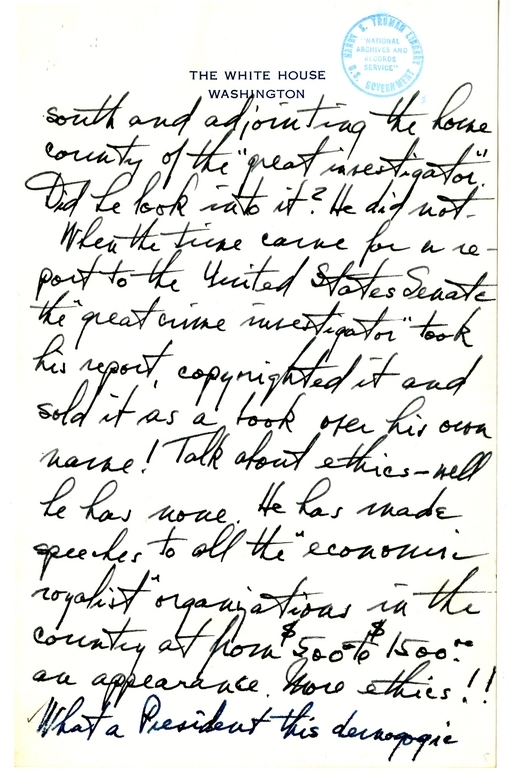 HARRY S. TRUMAN LIBRARY
"NATIONAL
ARCHIVES AND
RECORDS
SERVICE"
U.S. GOVERNMENT
THE WHITE HOUSE
WASHINGTON
south and adjointing the home
county of the "great investigator".
Did he look into it? He did not.
When the time came for a re-
port to the United States Senate
the "great crime investigator" took
his report, copyrighted it and
sold it as a book over his own
name! Talk about ethics - well
he has none. He has made
speeches to all the "economic
royalist" organizations in the
country at from $500 to $1500.00
an appearance. More ethics!!
What a President this demogogic